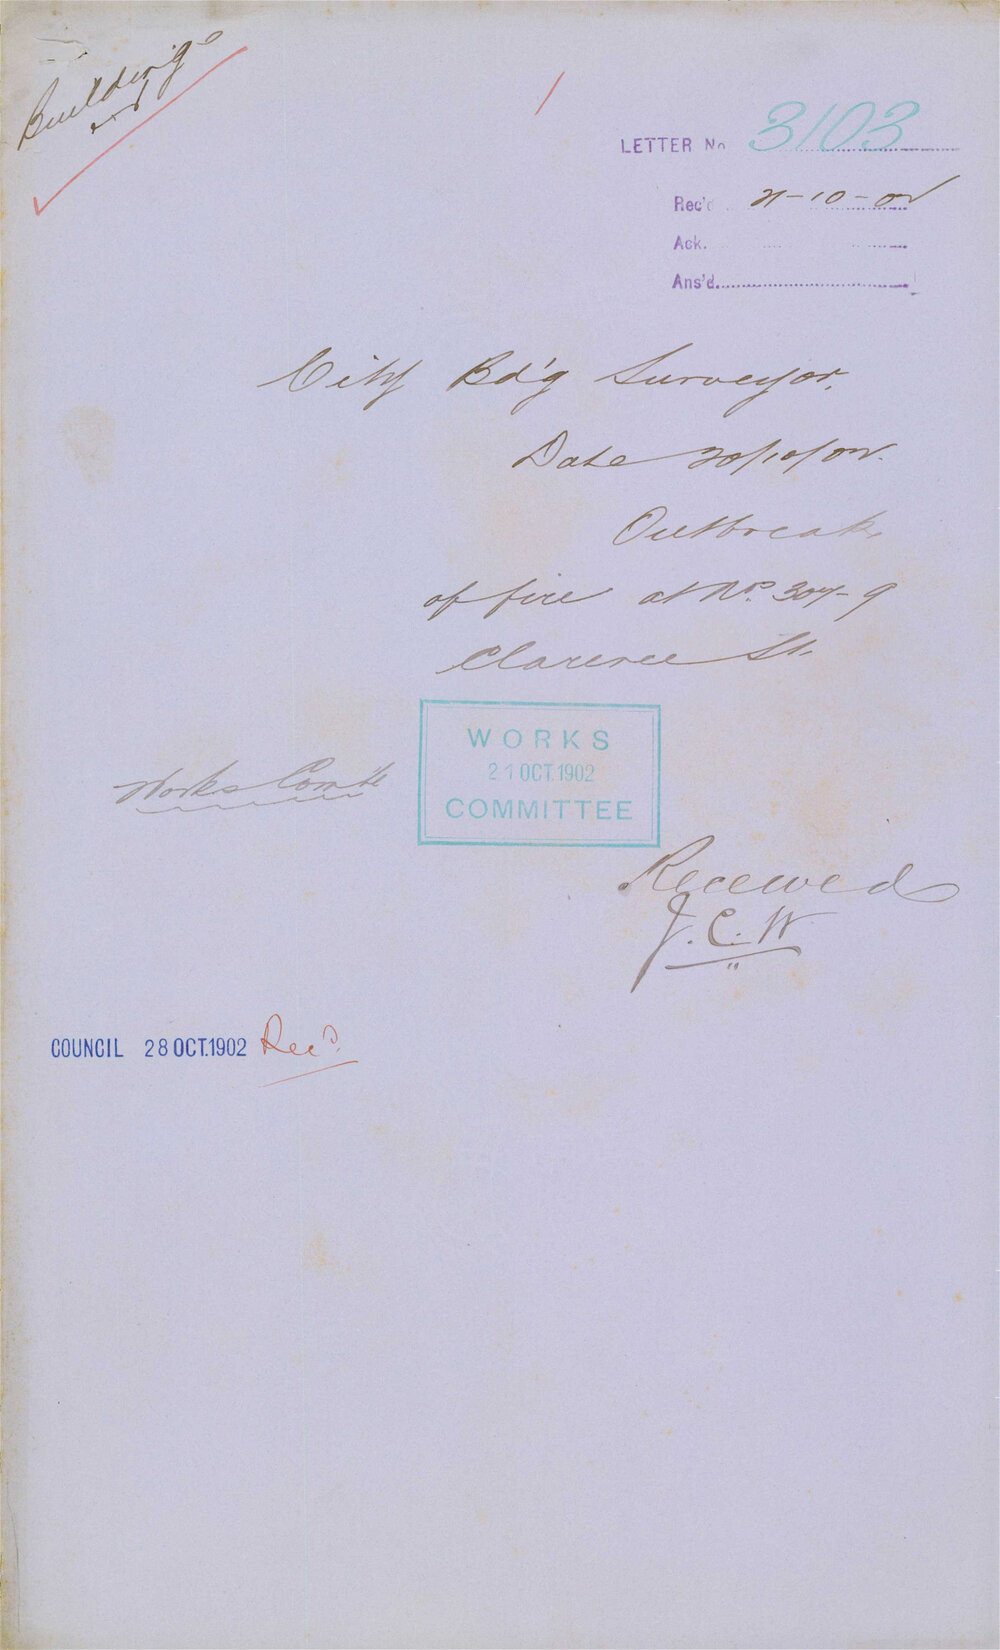 Buildings
LETTER No 3103
Rec'd 21-10-02
Ack.
Ans'd.
City Bd'g Surveyor.
Date 20/10/02.
Outbreak
of fire at No. 307-9
Clarence St.
WORKS
21 OCT.1902
COMMITTEE
Works Com'tee
Received
J.C.W
COUNCIL 28 OCT.1902 Rec'd.